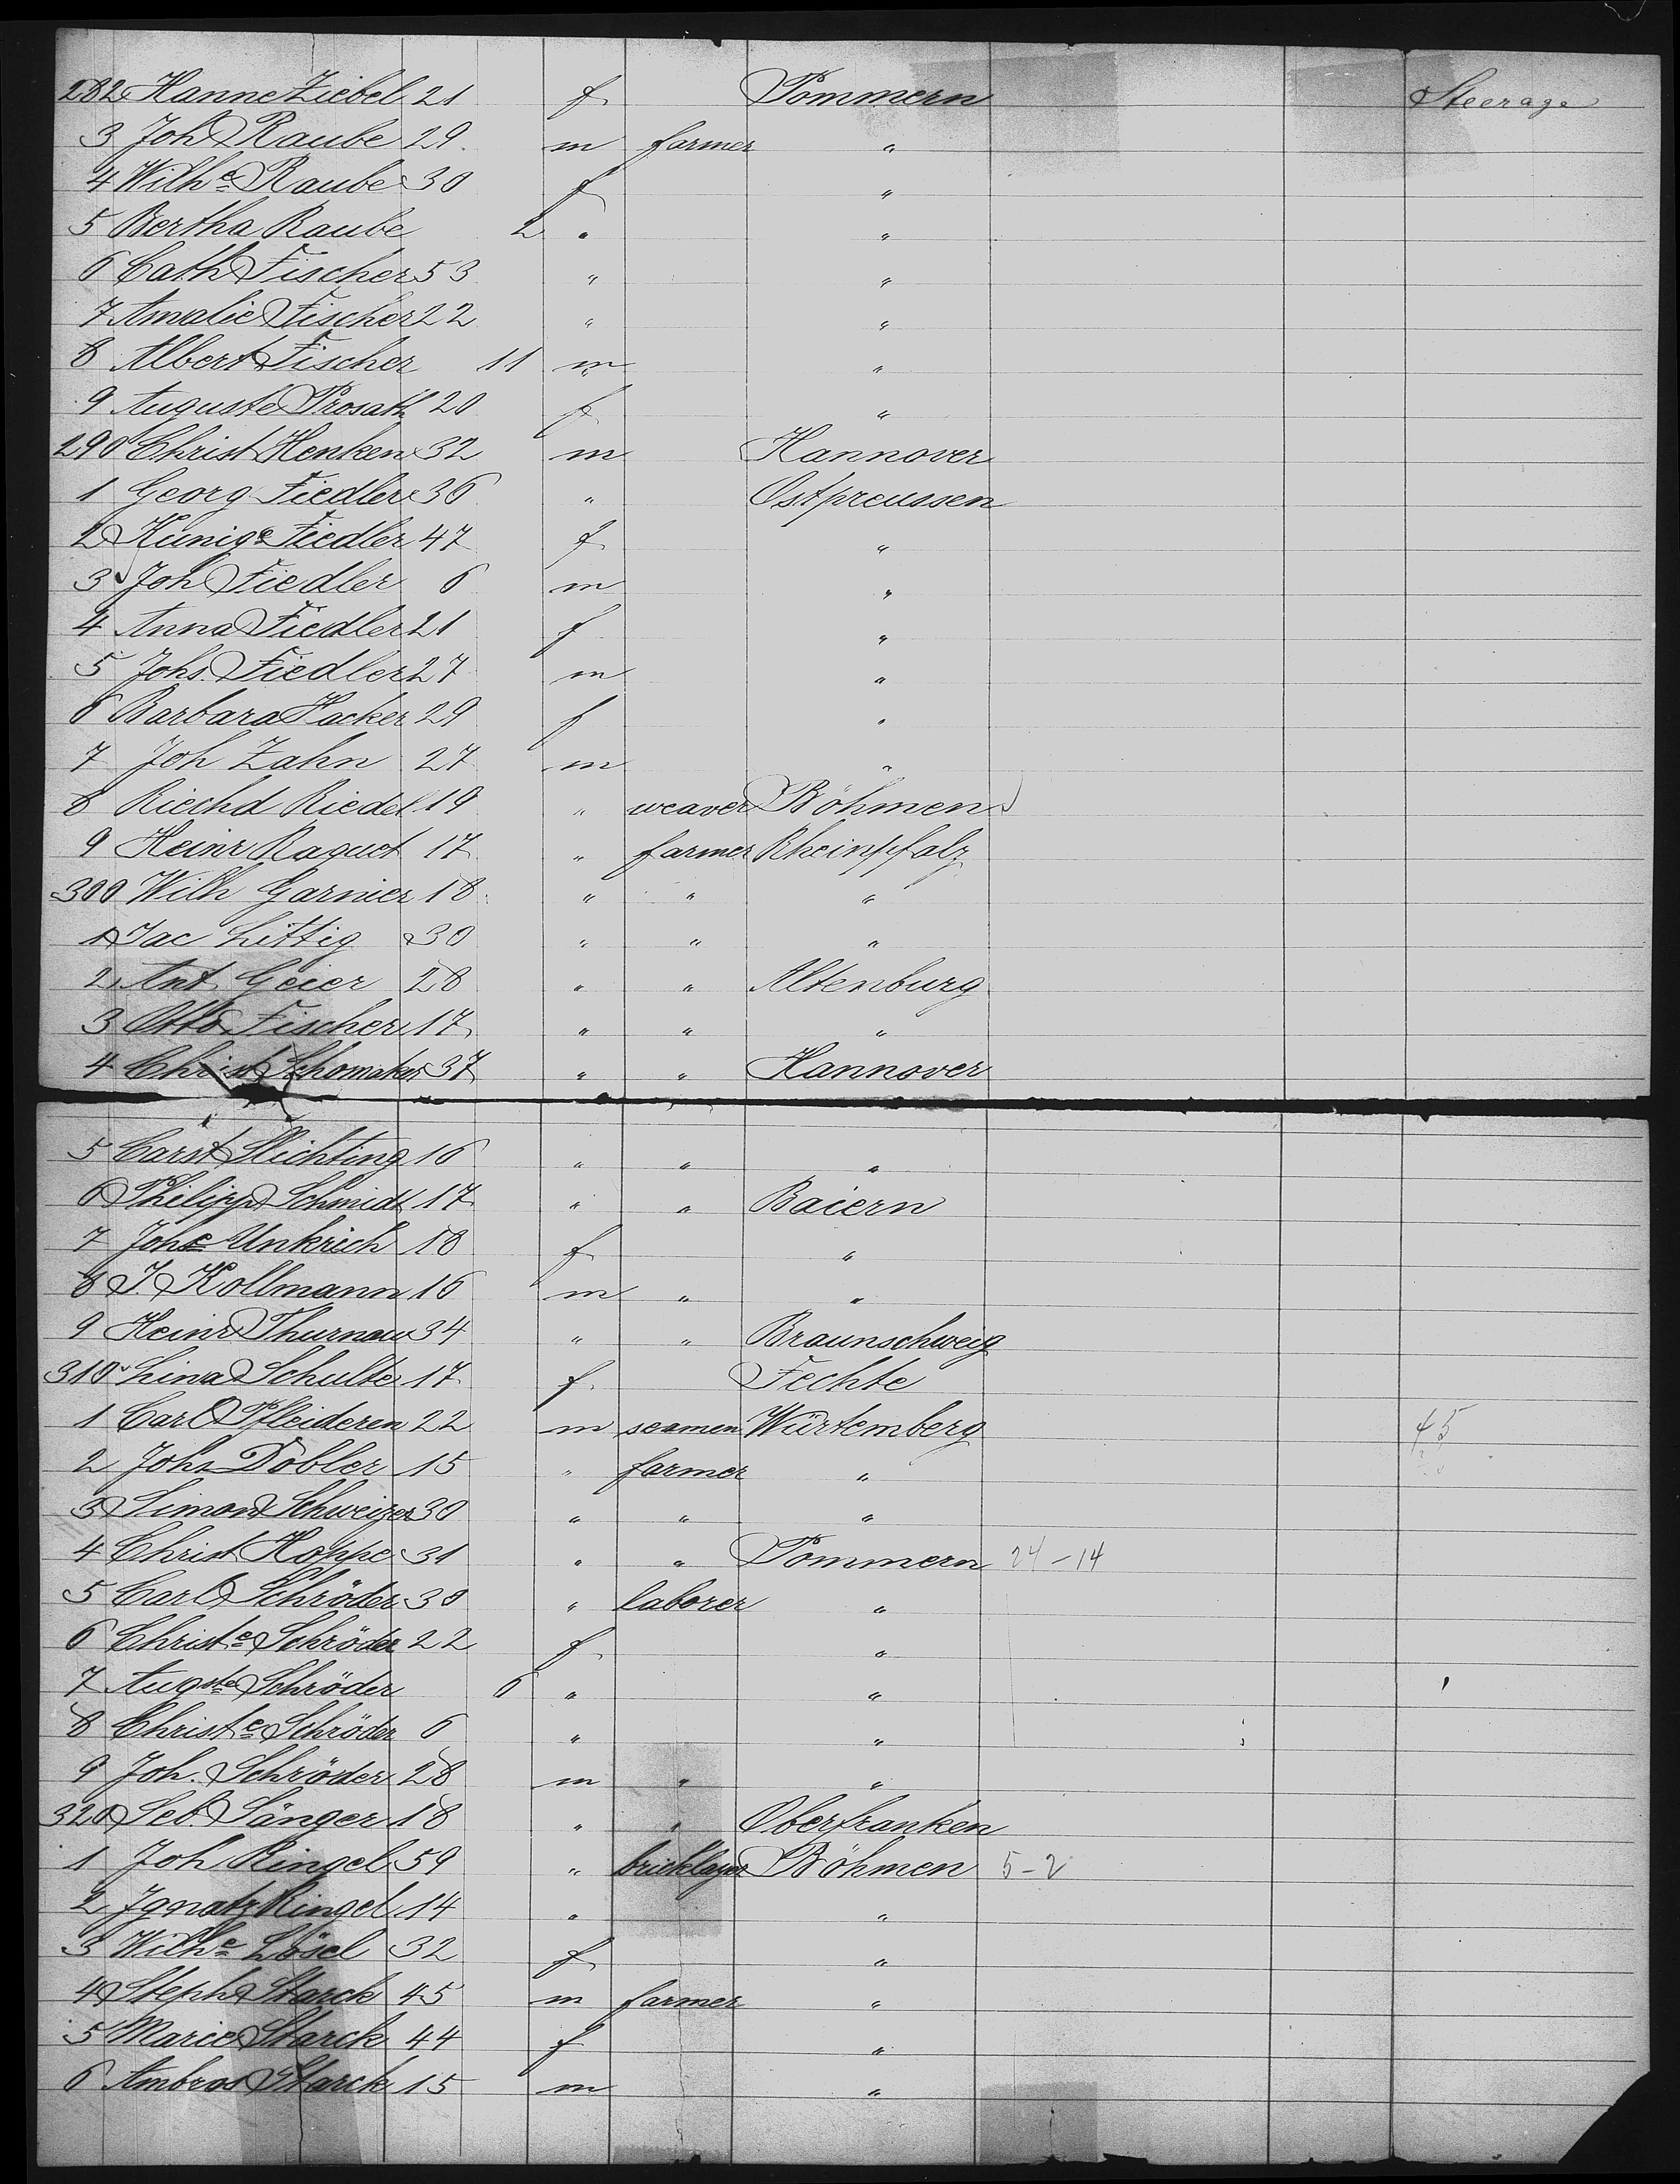 282 Hanne Ziebel 21 f Pommern Steerage
3 Joh Raube 29 m farmer "
4 Wilhe Raube 30 f "
5 Bertha Raube 2 " "
6 Cath Fischer 53 " "
7 Amalie Fischer 22 " "
8 Albert Fischer 11 m "
9 Auguste Prosath 20 f "
290 Christ Henken 32 m Hannover
1 Georg Fiedler 36 " Ostpreussen
2 Kunige Fiedler 47 f "
3 Joh Fiedler 6 m "
4 Anna Fiedler 21 f "
5 Johs. Fiedler 27 m "
6 Barbara Hacker 29 f "
7 Joh Zahn 27 m "
8 Riechd Riedel 19 " weaver Böhmen
9 Heinr Raquot 17 " farmer Rheinpfalz
300 Wilh Garnier 18 " " "
1 Jac Littig 30 " " "
2 Ant Geier 28 " " Altenburg
3 Otto Fischer 17 " " "
4 Christ Schomaker 37 " " Hannover
5 Carst Stichting 16 " " "
6 Philipp Schmidt 17 " " Baiern
7 Johe Unkrich 18 f "
8 J. Kollmann 16 m " "
9 Heinr Thurnau 34 " " Braunschweig
310 Lina Schulte 17 f Fechte
1 Carl Pfleideren 22 m seamen Würtemberg 45
2 Johs Dobler 15 " farmer "
3 Simon Schweizer 30 " " "
4 Christ Hoppe 31 " " Pommern 24-14
5 Carl Schröder 30 " laborer "
6 Christe Schröder 22 f "
7 Augste Schröder 6 " "
8 Christe Schröder 6 " "
9 Joh. Schröder 28 m " "
320 Seb. Sänger 18 " " Oberfranken
1 Joh Ringel 59 " bricklayer Böhmen 5-2
2 Ignatz Ringel 14 " "
3 Wilhe Lösel 32 f "
4 Steph Starck 45 m farmer "
5 Marie Starck 44 f "
6 Ambros Starck 15 m "